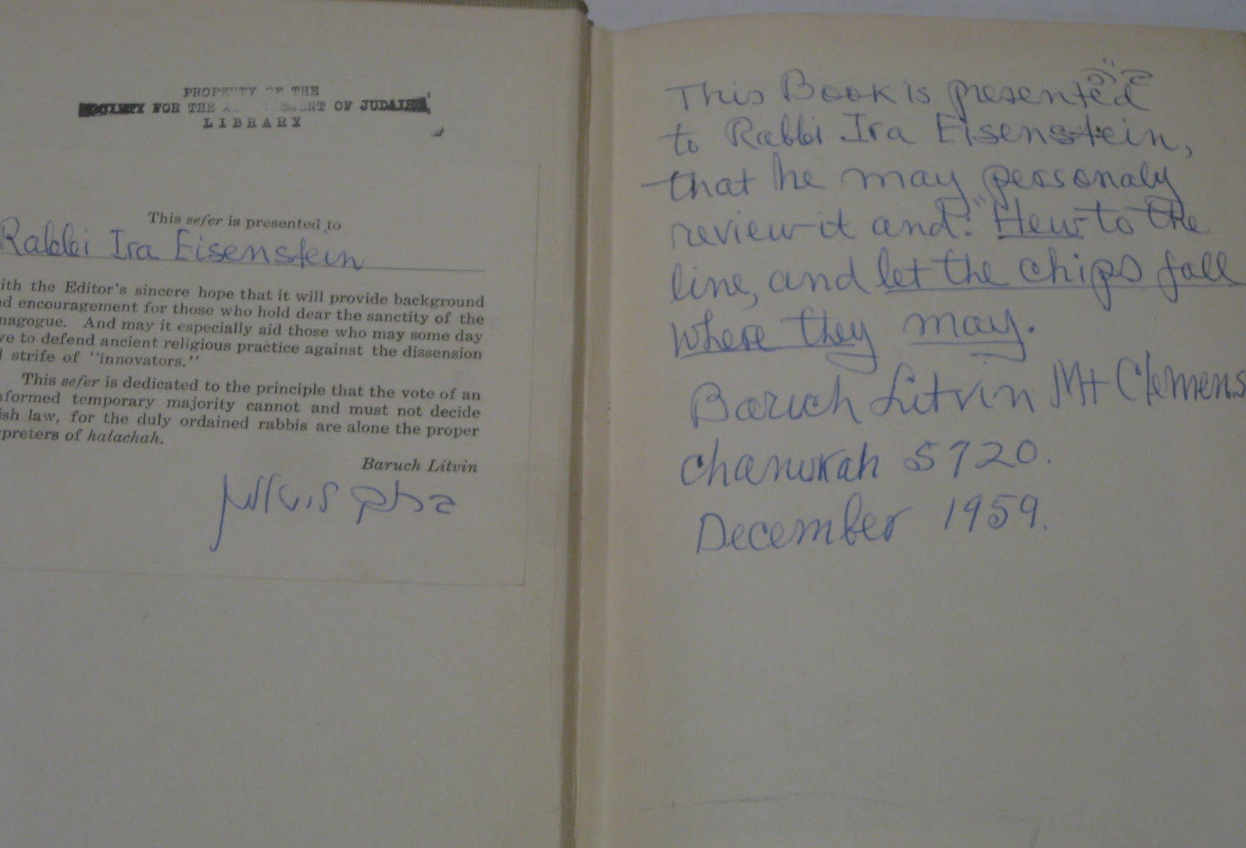 PROPERTY OF THE
SOCIETY FOR THE ADVANCEMENT OF JUDAISM
LIBRARY
This sefer is presented to
Rabbi Ira Eisenstein
ith the Editor's sincere hope that it will provide background
d encouragement for those who hold dear the sanctity of the
nagogue. And may it especially aid those who may some day
ve to defend ancient religious practice against the dissension
d strife of "innovators."
This sefer is dedicated to the principle that the vote of an
nformed temporary majority cannot and must not decide
ish law, for the duly ordained rabbis are alone the proper
rpreters of halachah.
Baruch Litvin
This Book is presented
to Rabbi Ira Eisenstein,
that he may personaly
review it and: "Hew to the
line, and let the chips fall
where they may.
Baruch Litvin Mt Clemens
chanukah 5720.
December 1959.